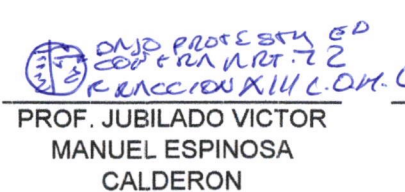 BAJO PROTESTA
CONTRA ART. 72
FRACCION XIII
PROF. JUBILADO VICTOR
MANUEL ESPINOSA
CALDERON